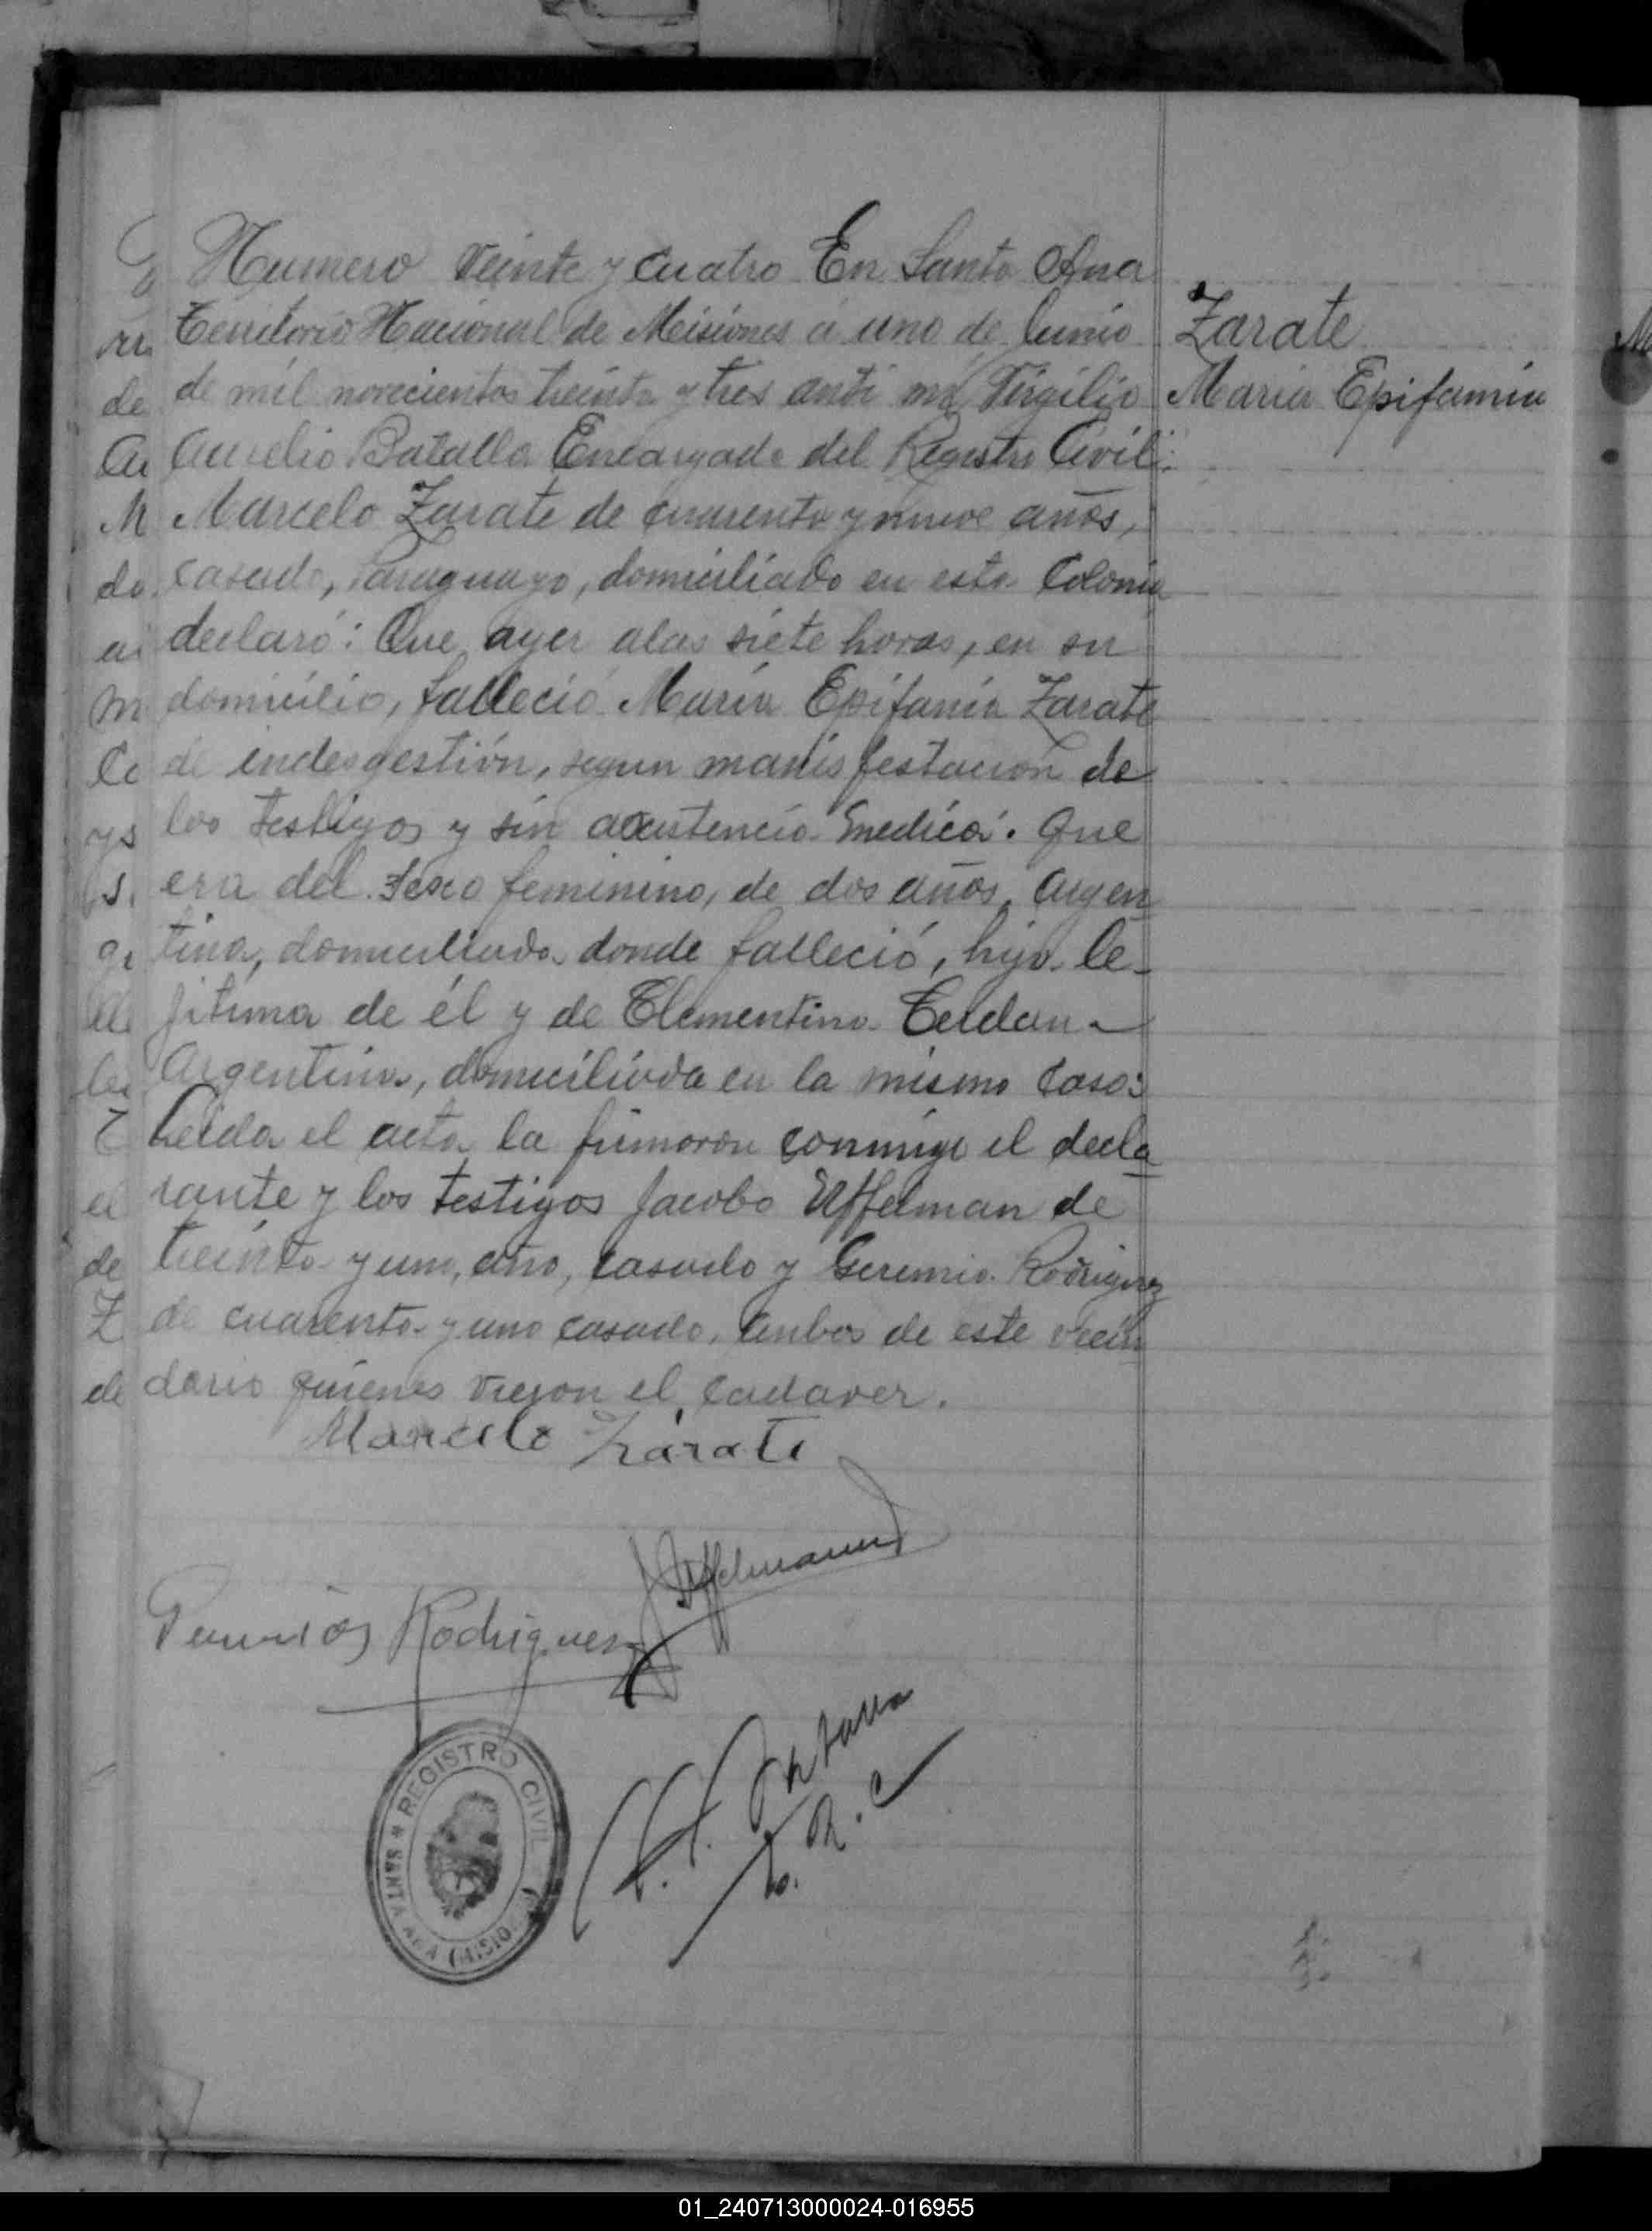 Numero veinte y cuatro En Santa Ana
Territorio Nacional de Misiones á uno de Junio
de mil novecientos treinta y tres anti mí Virgilio
Aurelio Batalla Encargado del Registro Civil:
Marcelo Zarate de cuarenta y nueve años,
casado, Paraguayo, domiciliado en esta Colonia
declaró: Que ayer a las siete horas, en su
domicilio, falleció María Epifania Zarate
de indesgestión, segun manisfestación de
los testigos y sin asistencia medica. Que
era del sexo feminino, de dos años, Argen
tina, domiciliada donde falleció, hija le-
jitima de él y de Clementina
Argentina, domiciliada en la misma casa:
Leida el acta la firmaron conmigo el decla
rante y los testigos Jacobo Uffelman de
treinta y un, año, casado y Geremia Rodriguez
de cuarenta y uno casado, ambos de este vecin
dario quienes vieron el cadaver.
Zarate
Maria Epifania
Marcelo Zárate
Uffelmann
Rodriguez
Batalla
E. R. C
REGISTRO CIVIL
SANTA ANA (MISIONES)
01_240713000024-016955